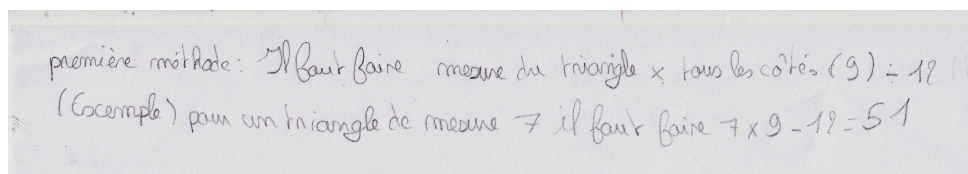 première méthode: Il faut faire mesure du triangle × tous les côtés (9) - 12
(Excemple) pour un triangle de mesure 7 il faut faire 7 × 9 - 12 = 51